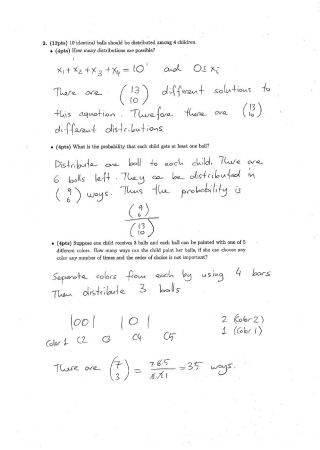 2. (12pts) 10 identical balls should be distributed among 4 children.
• (4pts) How many distributions are possible?
x₁+x₂+x₃+x₄=10 and 0≤xᵢ
There are (13 10) different solutions to
this equation. Therefore there are (13 10)
different distributions.
• (4pts) What is the probability that each child gets at least one ball?
Distribute one ball to each child. There are
6 balls left. They can be distributed in
(9 6) ways. Thus the probability is
(9 6)
(13 10)
• (4pts) Suppose one child receives 3 balls and each ball can be painted with one of 5
different colors. How many ways can the child paint her balls, if she can choose any
color any number of times and the order of choice is not important?
Separate colors from each by using 4 bars
Then distribute 3 balls
|00| |0| 2 (color 2)
Color 1 C2 C3 C4 C5 1 (color 1)
There are (7 3) = 7.6.5 = 35 ways.